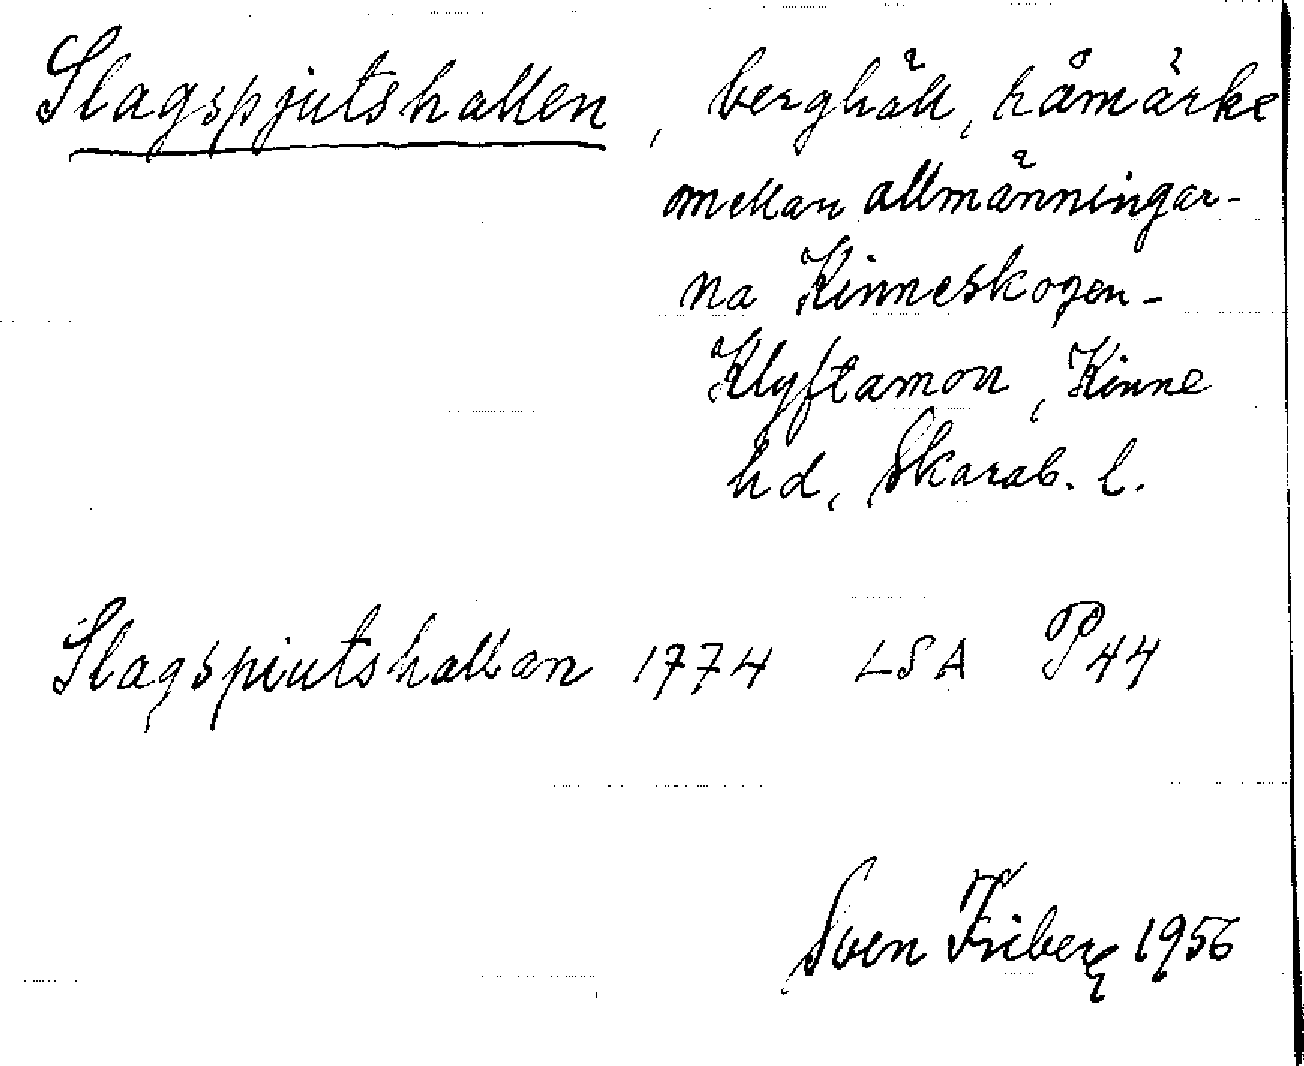 Slagspjutshallen, berghäll, råmärke
mellan allmänningar-
na Kinneskogen-
Klyftamon, Kinne
hd, Skarab. l.
Slagspiutshallan 1774 LSA P44
Sven Friberg 1956